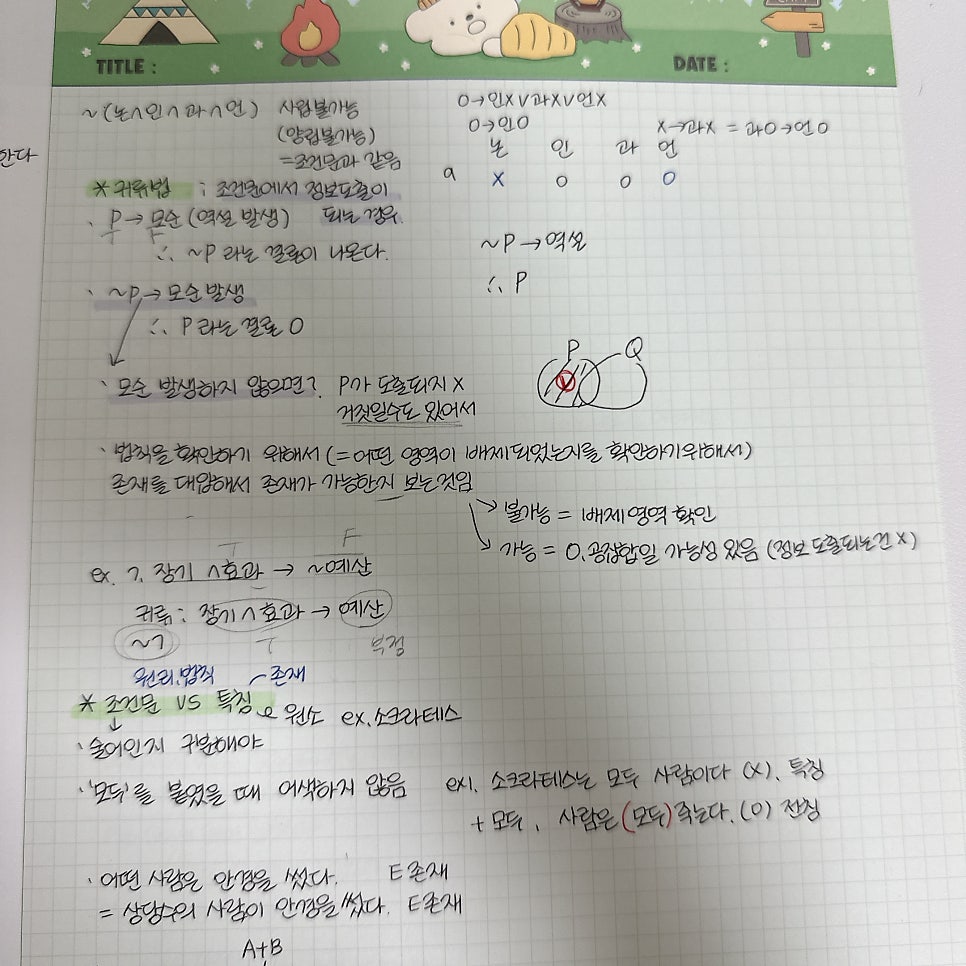 TITLE :
DATE :
한다
~(논∧인∧과∧언) 사립불가능
(양립불가능)
=조건문과 같음
O→인X∨과X∨언X
O→인O
X→과X = 과O→언O
논 인 과 언
a X O O O
* 귀류법 : 조건문에서 정보도출이
되는 경우.
· P → 모순 (역설 발생)
T F
∴ ~P 라는 결론이 나온다.
~P → 역설
∴ P
· ~P → 모순 발생
∴ P 라는 결론 O
P Q
V
· 모순 발생하지 않으면? P가 도출되지 X
거짓일수도 있어서
· 법칙을 확인하기 위해서 (=어떤 영역이 배제되었는지를 확인하기위해서)
존재를 대입해서 존재가 가능한지 보는것임
↳ 불가능 = 배제영역 확인
↳ 가능 = O, 공집합일 가능성 있음 (정보 도출되는건 X)
T F
ex. ㄱ. 장기 ∧효과 → ~예산
귀류: 장기∧효과 → 예산
~ㄱ T 부정
원리.법칙 존재
* 조건문 VS 특칭 원소 ex.소크라테스
· 술어인지 구분해야
· '모두'를 붙였을 때 어색하지 않음 ex1. 소크라테스는 모두 사람이다 (X). 특칭
+ 모두, 사람은 (모두) 죽는다. (O) 전칭
· 어떤 사람은 안경을 썼다. E존재
= 상당수의 사람이 안경을 썼다. E존재
A+B